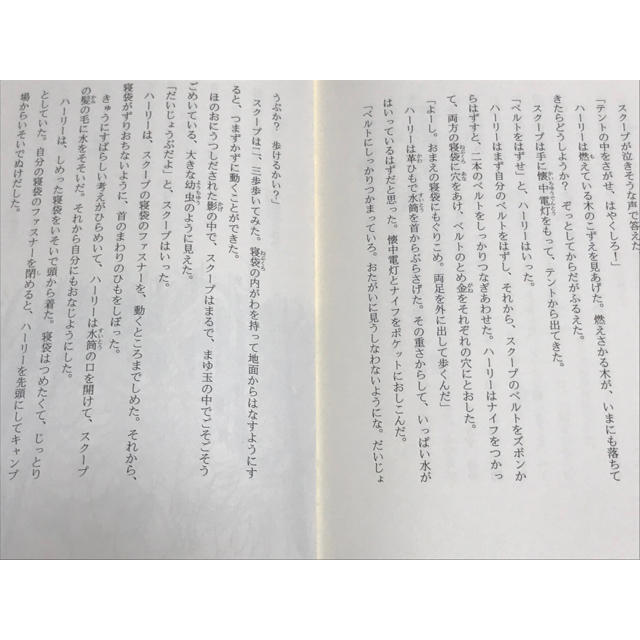 スクープが泣きそうな声で答えた
「テントの中をさがせ、はやくしろ!」
ハーリーは燃えている木のこずえを見あげた。燃えさかる木が、いまにも落ちて
きたらどうしようか？　ぞっとしてからだがふるえた。
スクープは手に懐中電灯をもって、テントから出てきた。
「ベルトをはずせ」と、ハーリーはいった。
ハーリーはまず自分のベルトをはずし、それから、スクープのベルトをズボンか
らはずすと、二本のベルトをしっかりつなぎあわせた。ハーリーはナイフをつかっ
て、両方の寝袋に穴をあけ、ベルトのとめ金をそれぞれの穴にとおした。
「よーし。おまえの寝袋にもぐりこめ。両足を外に出して歩くんだ」
ハーリーは革ひもで水筒を首からぶらさげた。その重さからして、いっぱい水が
はいっているはずだと思った。懐中電灯とナイフをポケットにおしこんだ。
「ベルトにしっかりつかまっていろ。おたがいに見うしなわないようにな。だいじょ
うぶか？　歩けるかい？」
スクープは二、三歩歩いてみた。寝袋の内がわを持って地面からはなすようにす
ると、つまずかずに動くことができた。
ほのおにうつしだされた影の中で、スクープはまるで、まゆ玉の中でごそごそう
ごめいている、大きな幼虫のように見えた。
「だいじょうぶだよ」と、スクープはいった。
ハーリーは、スクープの寝袋のファスナーを、動くところまでしめた。それから、
寝袋がずりおちないように、首のまわりのひもをしばった。
きゅうにすばらしい考えがひらめいて、ハーリーは水筒の口を開けて、スクープ
の髪の毛に水をそそいだ。それから自分にもおなじようにした。
ハーリーは、しめった寝袋をいそいで頭から着た。寝袋はつめたくて、じっとり
としていた。自分の寝袋のファスナーを閉めると、ハーリーを先頭にしてキャンプ
場からいそいでぬけだした。